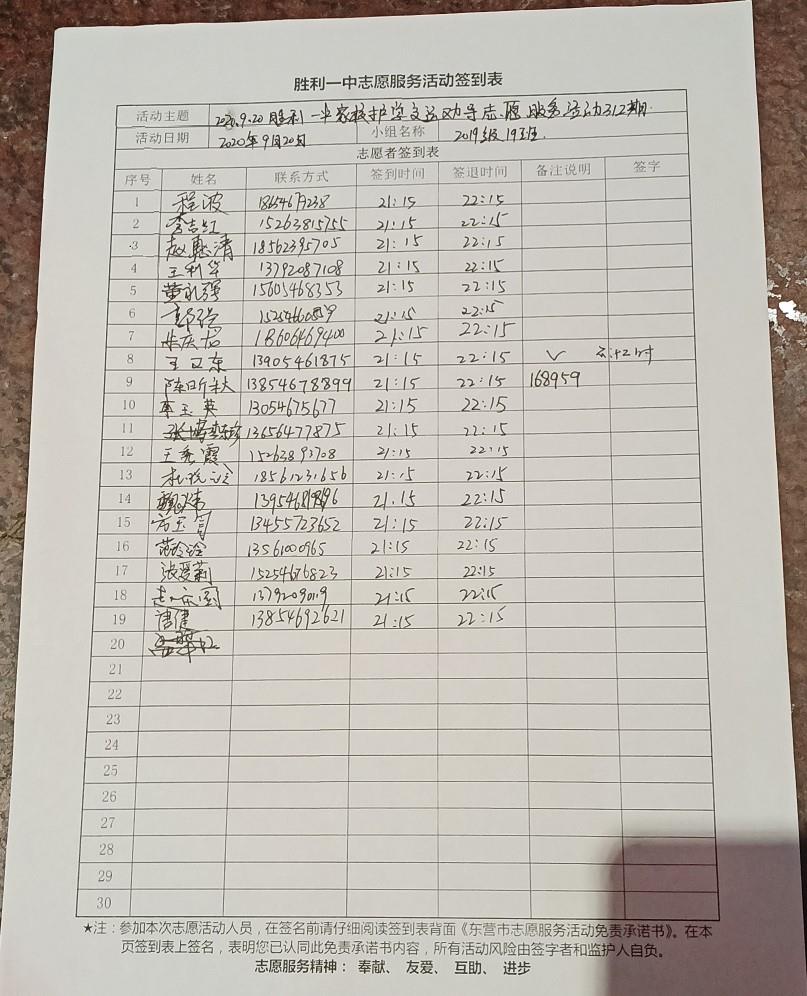 胜利一中志愿服务活动签到表
活动主题 2020.9.20胜利一中家校护学交通劝导志愿服务活动312期
活动日期 2020年9月20日 小组名称 2019级19班.
志愿者签到表
序号 姓名 联系方式 签到时间 签退时间 备注说明 签字
1 程波 21:15 22:15
2 李志红 15263815755 21:15 22:15
3 赵惠清 18562395705 21:15 22:15
4 王利华 13792087108 21:15 22:15
5 黄永强 15605468353 21:15 22:15
6 21:15 22:15
7 朱庆龙 18606469400 21:15 22:15
8 王卫东 13905461875 21:15 22:15 √
9 陈昕 13854678899 21:15 22:15 168959
10 李玉英 13054675677 21:15 22:15
11 13656477875 21:15 22:15
12 王秀霞 15263893708 21:15 22:15
13 18561231656 21:15 22:15
14 21:15 22:15
15 13455723652 21:15 22:15
16 13561000965 21:15 22:15
17 张爱莉 15254676823 21:15 22:15
18 21:15 22:15
19 唐健 13854692621 21:15 22:15
20
21
22
23
24
25
26
27
28
29
30
★注：参加本次志愿活动人员，在签名前请仔细阅读签到表背面《东营市志愿服务活动免责承诺书》。在本
页签到表上签名，表明您已认同此免责承诺书内容，所有活动风险由签字者和监护人自负。
志愿服务精神：奉献、友爱、互助、进步